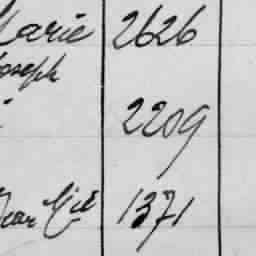 Marie 2626
Joseph
2209
Jean 1371